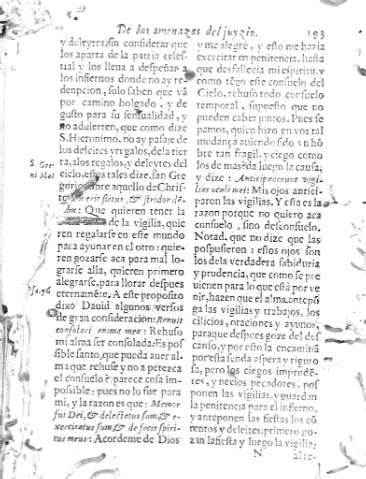 De las amenazas del juyzio. 193
y deleytes, sin considerar que
los aparta de la patria celes-
tial y los lleua a despeñar a
los infiernos donde no ay re-
dempcion, solo saben que và
por camino holgado, y de
gusto para su sensualidad, y
no aduierten, que como dize
S. Hieronimo, no ay passaje de
los deleites y regalos, de la tier
ra, a los regalos, y deleytes del
S. Gre.
ni Mat
cielo. estos tales dize, san Gre
gorio, sobre aquello de Chris-
to: erit fletus, & stridor dē-
Que quieren tener la
de la vigilia, quie
ren regalarse en este mundo
para ayunar en el otro: quie-
ren gozarse aca para mal lo-
grarse alla, quieren primero
alegrarse, para llorar despues
Psa. 76
eternamēte. A este proposito
dixo Dauid algunos versos
de gran consideracion: Renuit
consolari anima mea: Rehuso
mi alma ser consolada: Es pos
sible santo, que pueda auer al-
ma que rehuse y no apetezca
el consuelo? parece cosa im-
possible: pues no lo fue para
mi, y la razon es que: Memor
fui Dei, & delectatus sum, & e-
xercitatus sum & defecit spiri-
tus meus: Acordeme de Dios
y me alegrè, y esto me hazia
exercitar en penitencia, hasta
que desfallecia mi espiritu, y
como tẽgo este consuelo del
Cielo, rehuso todo consuelo
temporal, supuesto que no
pueden caber juntos. Pues se
pamos, quien hizo en vos tal
mudança auiendo sido vn hō
bre tan fragil, y ciego como
los de mas? da luego la causa,
y dize: Anticipauerunt vigi-
lias oculi mei: Mis ojos antici-
paron las vigilias. Y esta es la
razon porque no quiero aca
consuelo, sino desconsuelo,
Notad, que no dize que las
pospusieron: estos ojos son
los de la verdadera sabiduria
y prudencia, que como se pre
uienen para lo que està por ve
nir, hazen que el alma antepō
ga las vigilias y trabajos, los
cilicios, oraciones y ayunos,
para que despues goze del des
canso, y por esto la encamina
por esta senda aspera y riguro
sa, pero los ciegos imprudē-
tes, y necios pecadores, pos
ponen las vigilias, y guardan
la penitencia para el infierno,
y anteponen las fiestas los cō
tentos y deleites: primero go-
zan la fiesta y luego la vigilia:
N